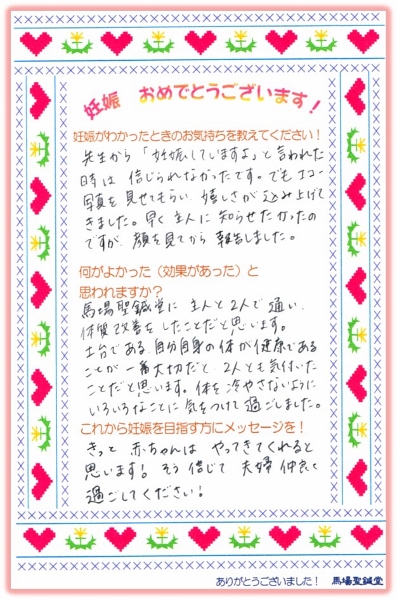 妊娠 おめでとうございます!
妊娠がわかったときのお気持ちを教えてください!
先生から「妊娠していますよ」と言われた
時は 信じられなかったです。でもエコー
写真を見せてもらい 嬉しさが込み上げて
きました。早く主人に知らせたかったの
ですが、顔を見てから 報告しました。
何がよかった(効果があった)と
思われますか?
馬場聖鍼堂に 主人と2人で通い、
体質改善をしたことだと思います。
土台である自分自身の体が健康である
ことが一番大切だと 2人とも気付いた
ことだと思います。体を冷やさないように
いろいろなことに気をつけて過ごしました。
これから妊娠を目指す方にメッセージを!
きっと 赤ちゃんは やってきてくれると
思います! そう信じて 夫婦 仲良く
過ごしてください!
ありがとうございました! 馬場聖鍼堂